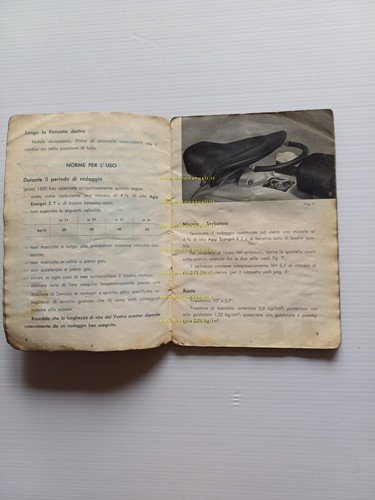 Lungo la fiancata destra
Pedale avviamento. Prima di azionarlo assicuratevi che il
cambio sia nella posizione di folle.
NORME PER L'USO
Durante il periodo di rodaggio
(primi 1500 km) osservate scrupolosamente quanto segue:
— usate come carburante una miscela al 4 % di olio Agip
Energol 2 T e di buona benzina auto.
— non superate le seguenti velocità:
in 1ª in 2ª in 3ª in 4ª
km/h 20 30 40 55
— non marciate in lungo alle precedenti massime velocità con-
sentite.
— non marciate in salita a pieno gas.
— non accelerate a pieno gas.
— non variate di colpo il regime del motore.
Stazione di Servizio le revisioni e quanto altro specificato nei
tagliandi di servizio gratuito che Vi sono stati consegnati
insieme allo scooter.
Ricordate che la lunghezza di vita del Vostro scooter dipende
notevolmente da un rodaggio ben eseguito.
Fig. 7
Miscela - Serbatoio
Terminato il rodaggio continuate ad usare una miscela al
4 % di olio Agip Energol 2 T e di benzina auto di buona qua-
lità.
Per accedere al tappo del serbatoio, aprire lo sportello posto
sulla scocca centrale tra le due selle (vedi fig. 7).
Il serbatoio contiene complessivamente litri 5,5 di miscela
di riserva (per il rubinetto vedi pag. 6).
Ruote
Pneumatici: 10" x 3,5".
Pressione di esercizio: anteriore 0,9 kg/cm²; posteriore con
solo guidatore 1,25 kg/cm²; posteriore con guidatore e passeg-
9